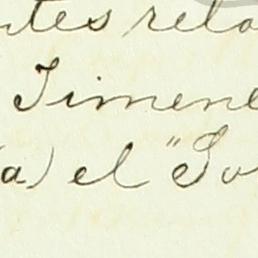 ntes rela
Jimene
a) el "So